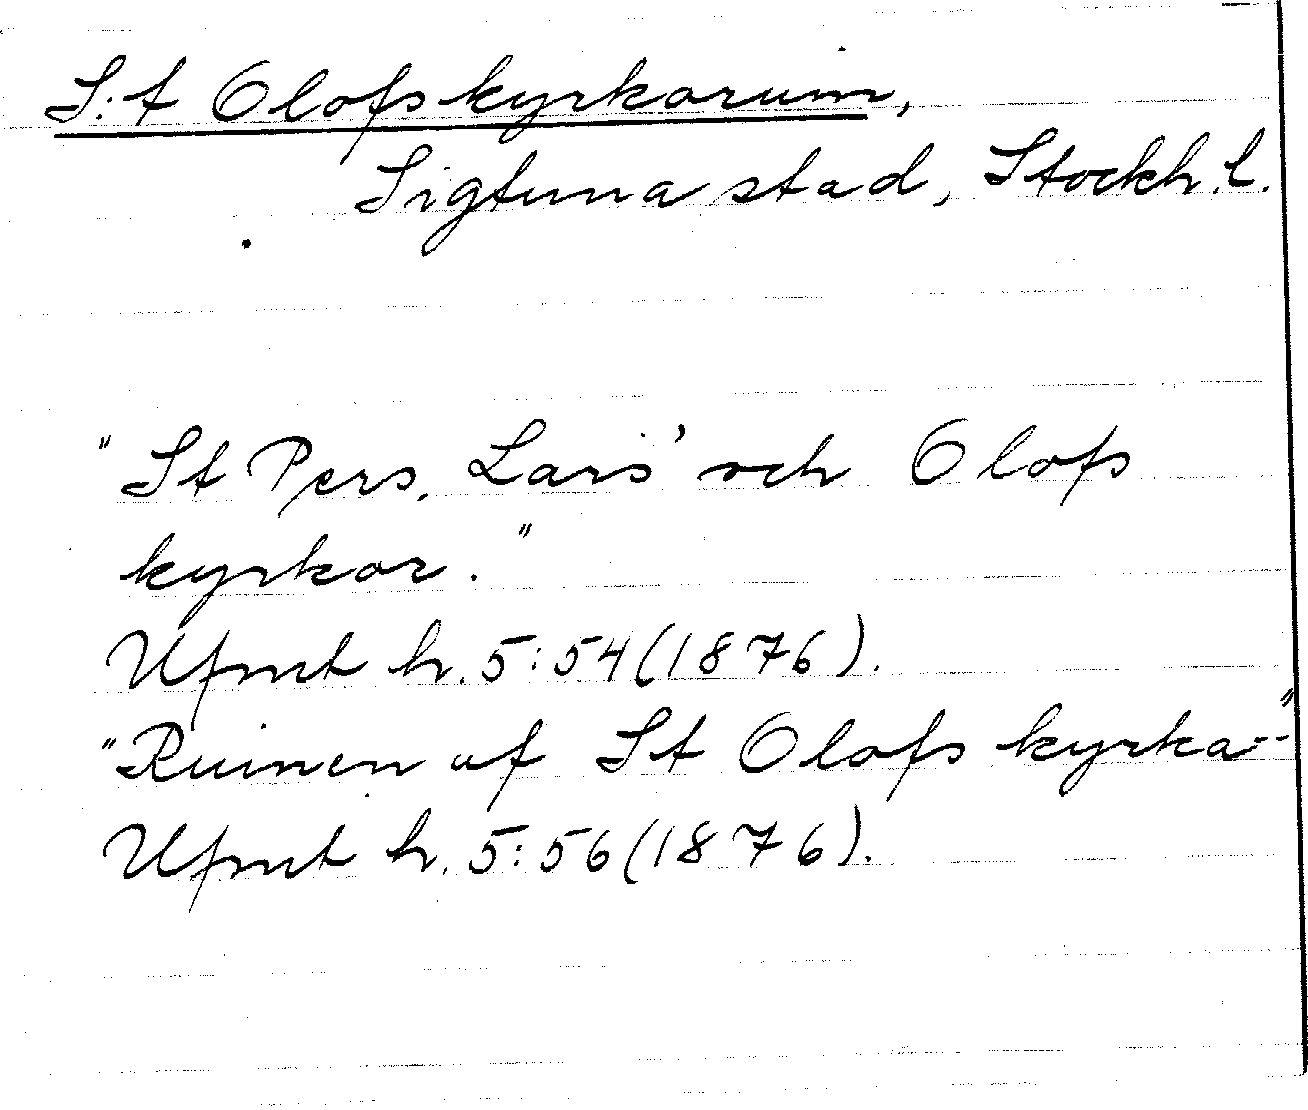 S:t Olofs kyrkoruin,
Sigtuna stad, Stockh. l.
"St Pers, Lars' och Olofs
kyrkor."
Ufmt h. 5:54 (1876).
"Ruinen af St Olofs kyrka--"
Ufmt h. 5:56 (1876).